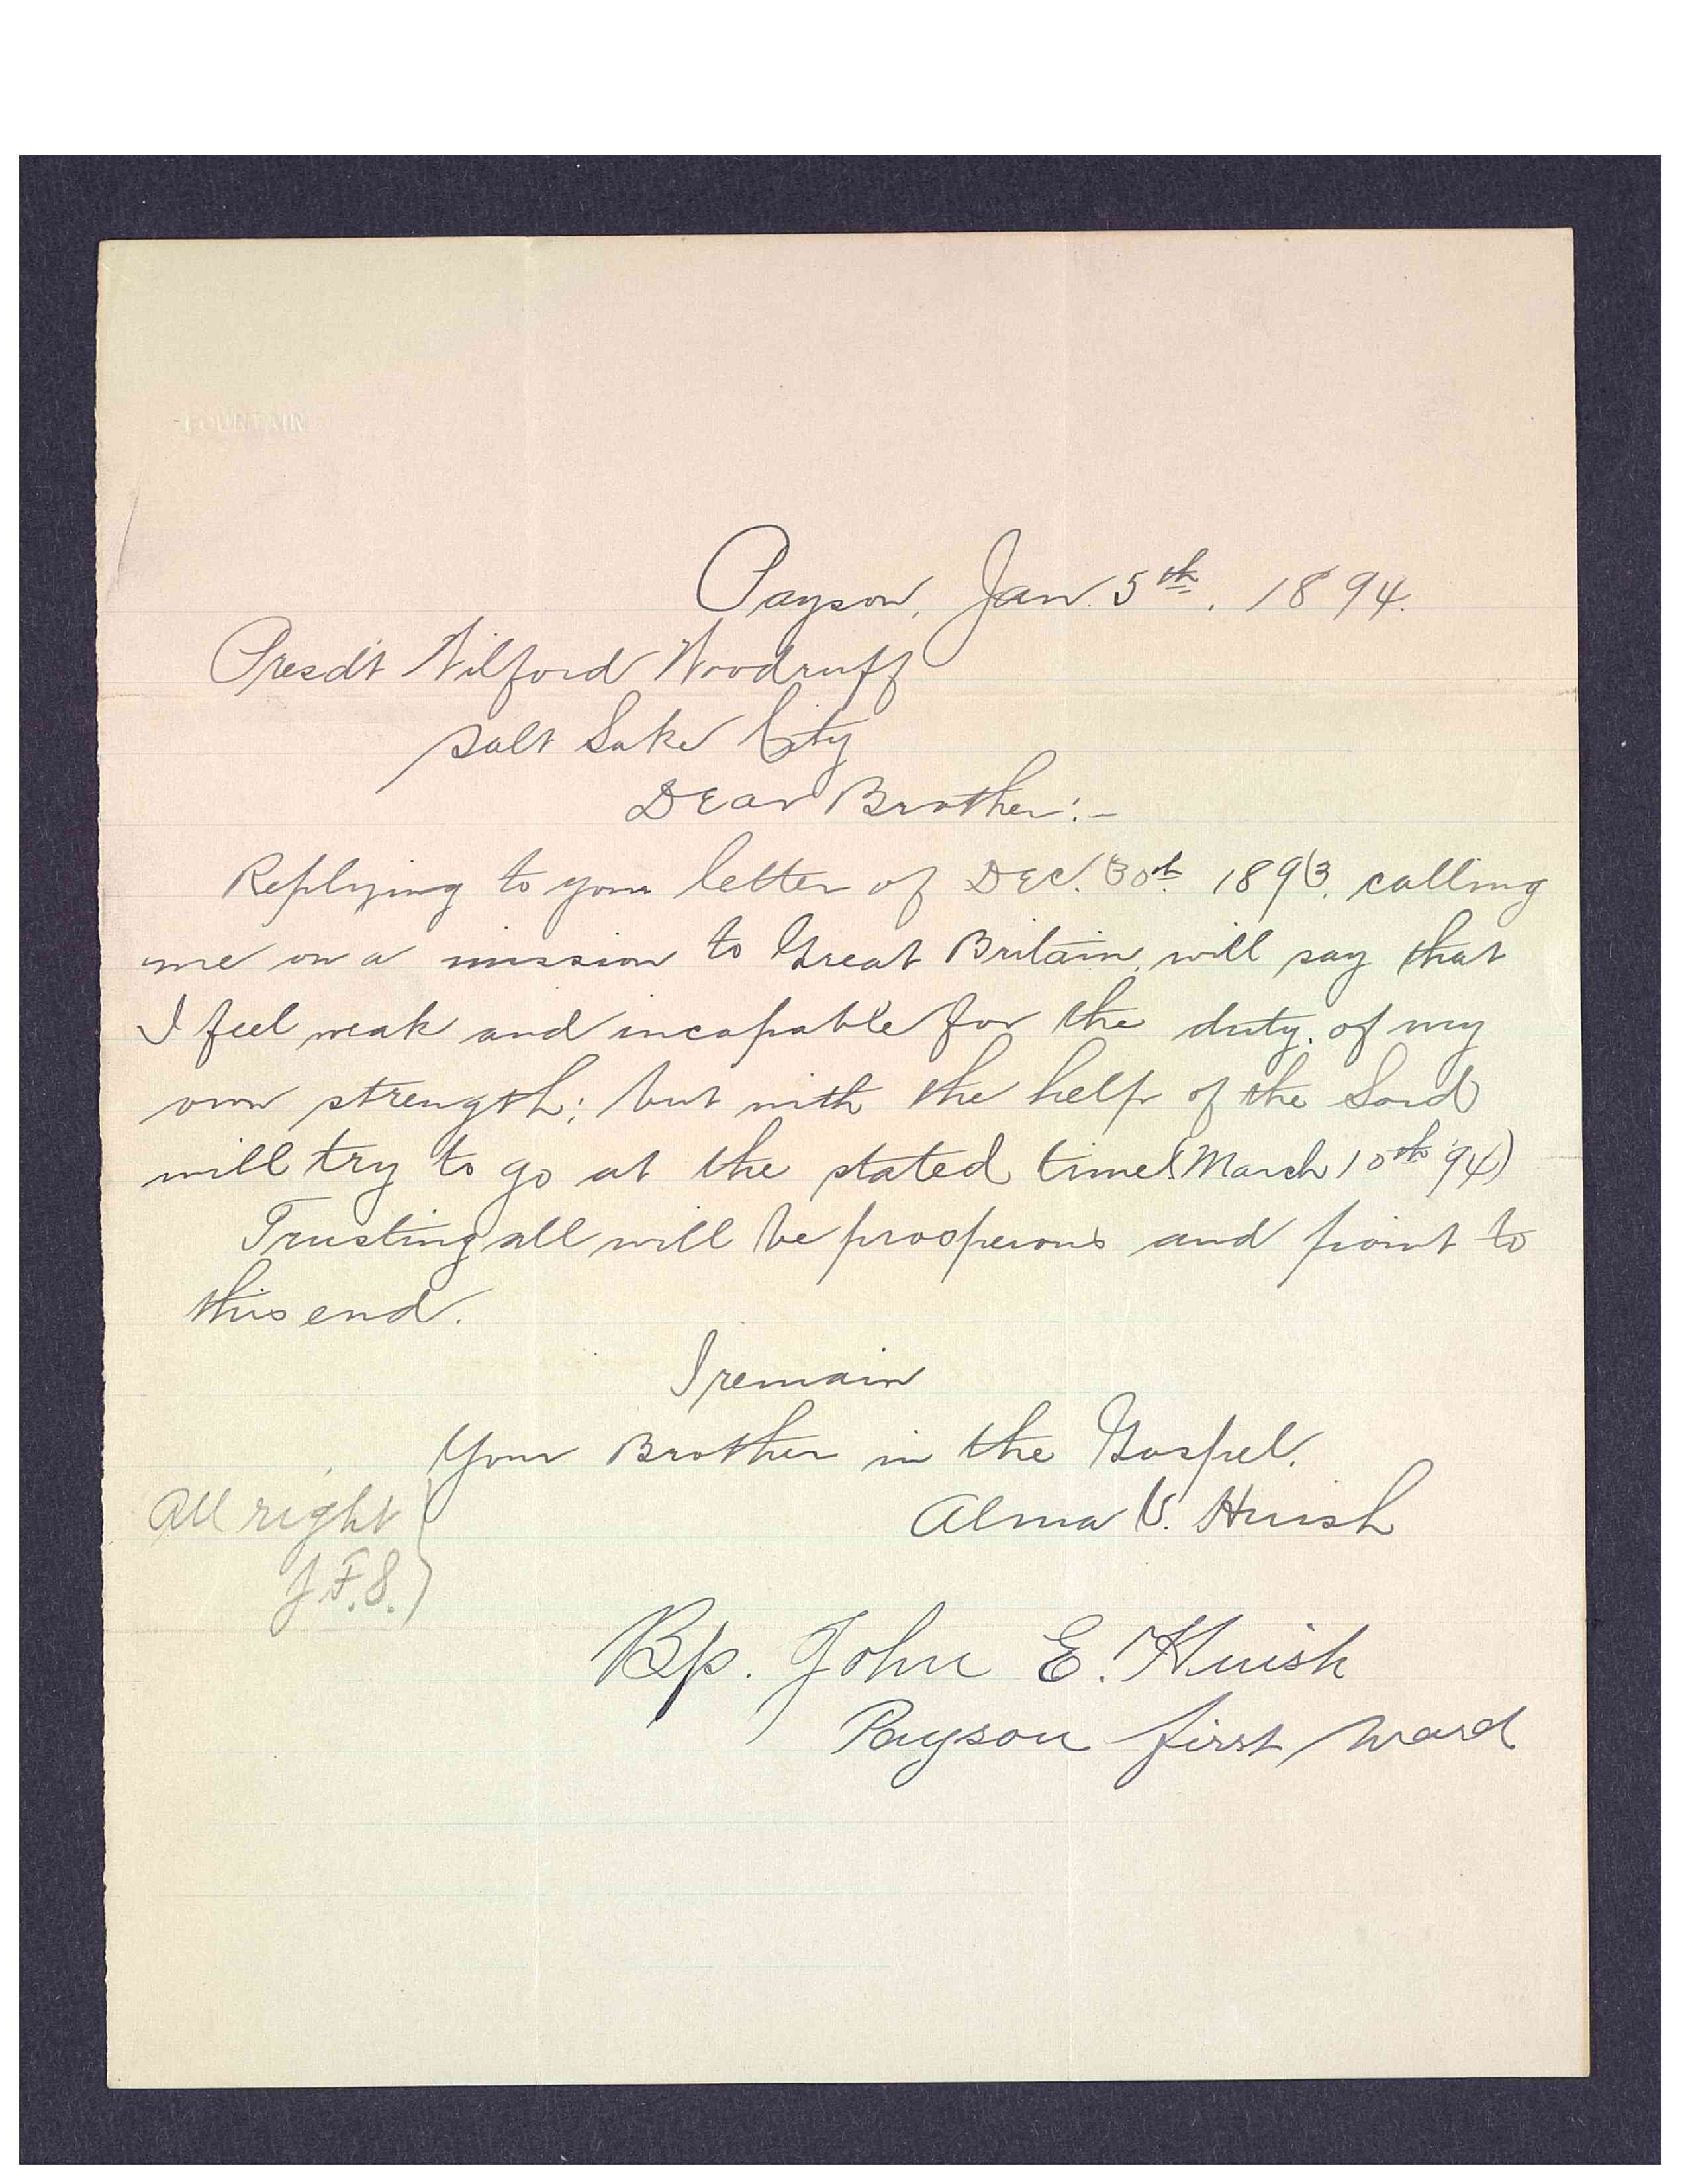 FOUNTAIN
Payson, Jan. 5th, 1894.
Presdt Wilford Woodruff
Salt Lake City
Dear Brother:-
Replying to your letter of Dec. 30th 1893, calling
me on a mission to Great Britain, will say that
I feel weak and incapable for the duty, of my
own strength; but with the help of the Lord
will try to go at the stated time (March 10th '94)
Trusting all will be prosperous and point to
this end.
I remain
Your Brother in the Gospel.
Alma V. Huish
All right
J. F. S.
Bp. John E. Huish
Payson first ward